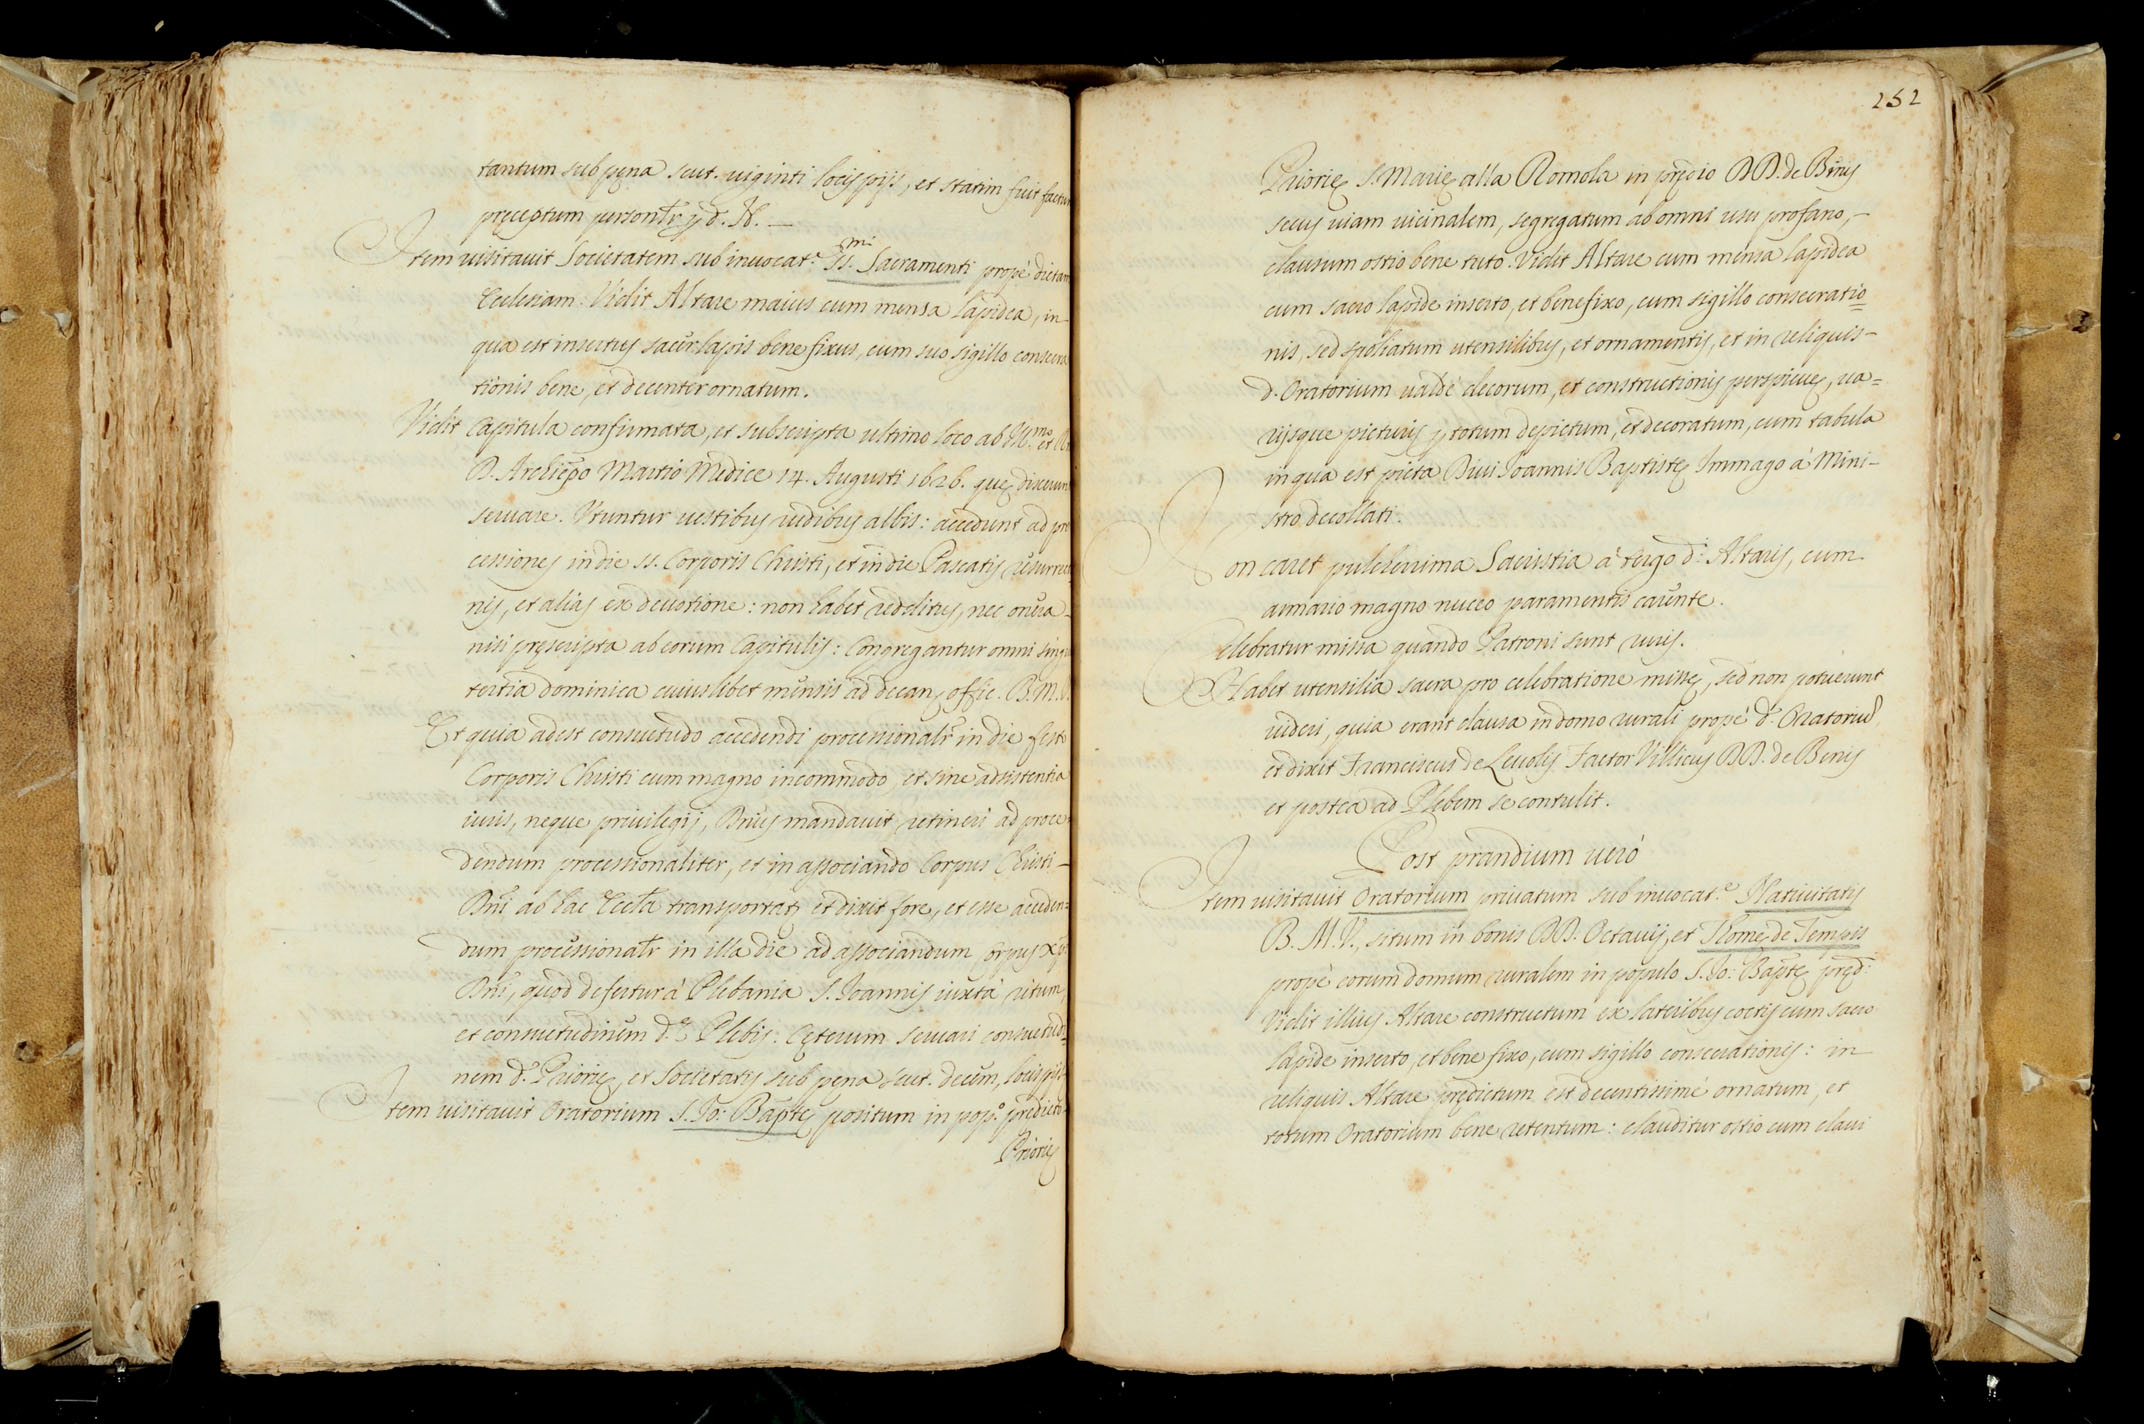 tantum sub pęna scut. uiginti locis pijs, et statim fuit factum
pręceptum personãlr p d. N. —
Item uisitauit Societatem sub inuocat.e SS.mi Sacramenti propè dictam
Ecclesiam. Vidit Altare maius cum mensa lapidea, in
qua est insertus sacer lapis bene fixus, cum suo sigillo consecra
tionis bene, et decenter ornatum.
Vidit Capitula confirmata, et subscripta ultimo loco ab Ill.mo et
D. Archiep̃o Martio Medice 14. Augusti 1626. quę dixerunt
seruare. Vtuntur uestibus rudibus albis: accedunt ad pro
cessiones in die SS. Corporis Christi, et in die Pascatis resurrectio
nis, et alias ex deuotione: non habet redditus, nec onera
nisi pręscripta ab eorum Capitulis: Congregantur omni
tertia dominica cuiuslibet mensis ad decan offic. B. M. V.
Et quia adest consuetudo accedendi processionalr̃ in die festo
Corporis Christi cum magno incommodo, et sine adsistentia
iuris, neque priuilegij, Dñus mandauit retineri ad proce
dendum processionaliter, et in associando Corpus Christi —
Dñi ab hac Eccl̃a transportat et dixit fore, et esse acceden=
dum processionalr̃ in illa die ad associandum Corpus Xp̃i
Dñi, quod defertur à Plebania S. Joannis iuxtà ritum,
et consuetudinem d.ę Plebis: Cęterum seruari consuetudi=
nem d.ę Priorię, et Societatis sub pena scut. decem, locis pijs
Item uisitauit Oratorium S. Jo: Bap̃tę positum in pop.o prędictę
Priorię
252
Priorię S. Marię alla Romola in prędio DD. de Binis
secus uiam uicinalem, segregatum ab omni usu profano, —
clausum ostio bene tuto. Vidit Altare cum mensa lapidea
cum sacro lapide inserto, et bene fixo, cum sigillo consecratio=
nis, sed spoliatum utensilibus, et ornamentis, et in reliquis —
d. Oratorium ualdè decorum, et constructionis perspicuę, ua=
rijsque picturis p totum depictum, et decoratum, cum tabula
in qua est picta Diui Joannis Baptistę Immago à Mini-
stro decollati.
Non caret pulcherrima Sacristia à tergo d.i Altaris, cum
armario magno nuceo paramentis carente.
Celebratur missa quando Patroni sunt ruris.
Habet utensilia sacra pro celebratione missę, sed non potuerunt
uideri, quia erant clausa in domo rurali propè d. Oratoriũ,
et dixit Franciscus de Leuolis Factor Villicus DD. de Benis
et postea ad Plebem se contulit.
Post prandium uerò
Item uisitauit Oratorium priuatum sub inuocat.e Natiuitatis
B. M. V., situm in bonis DD. Octauij, et Thomę de Tempis
propè eorum domum ruralem in populo S. Jo: Bap̃tę pręd.
Vidit illius Altare constructum ex lateribus coctis cum sacro
lapide inserto, et bene fixo, cum sigillo consecrationis: in
reliquis Altare prędictum est decentissimè ornatum, et
totum Oratorium bene retentum: clauditur ostio cum claui